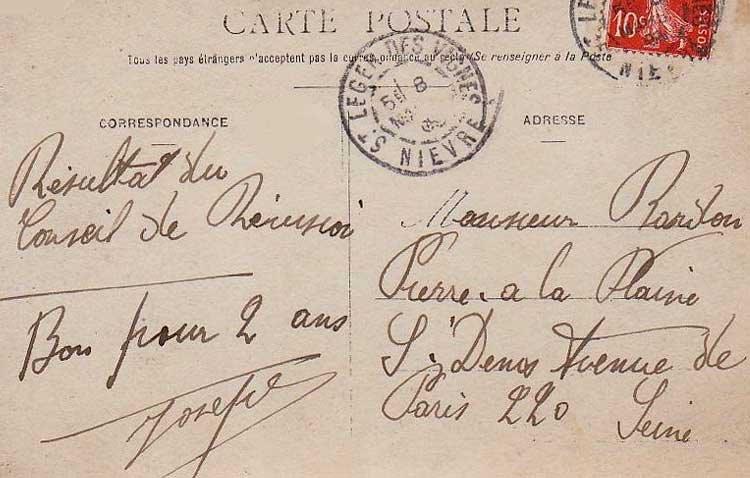 CARTE POSTALE
Tous les pays étrangers n'acceptent pas la correspondance au recto (Se renseigner à la Poste
CORRESPONDANCE
ADRESSE
10c
POSTES
ST LEGER DES VIGNES
NIEVRE
LE
NIE
Résultat du
Conseil de Révision
Bon pour 2 ans
Joseph
Monsieur
Pierre a la Plaine
St Denis Avenue de
Paris 220 Seine